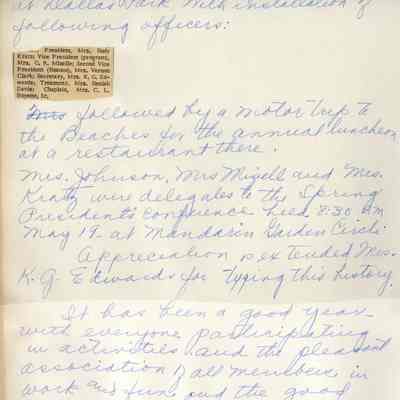 at Dallas Park with installation of
following officers:
President, Mrs. Rudy
Kratz; Vice President (program),
Mrs. C. R. Mizelle; Second Vice
President (finance), Mrs. Vernon
Clark; Secretary, Mrs. K. G. Ed-
wards; Treasurer, Mrs. Beulah
Davis; Chaplain, Mrs. C. L.
Eugene, Sr.
Mrs followed by a motor trip to
the Beaches for the annual luncheon
at a restaurant there.
Mrs. Johnson, Mrs Mizell and Mrs.
Kratz were delegates to the Spring
President's Conference held 8:30 AM
May 19 at Mandarin Garden Circle
Appreciation is extended Mrs.
K. G. Edwards for typing this history.
It has been a good year
with everyone participating
in activities and the pleasant
association of all members in
work and fun and the good